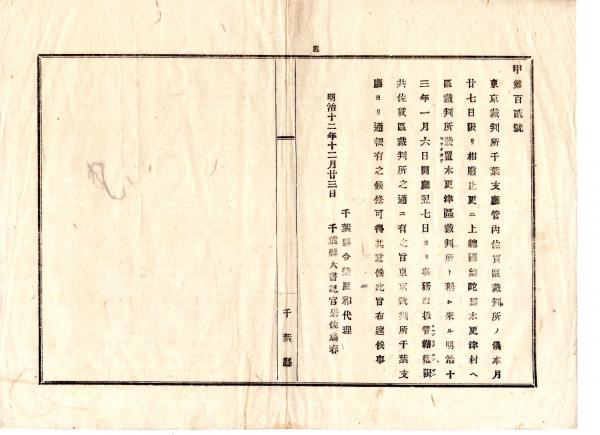 甲第百貳號
東京裁判所千葉支廳管內佐貫區裁判所ノ儀本月
廿七日限リ相廢止更ニ上總國望陀郡木更津村ヘ
區裁判所設置木更津區裁判所ト稱シ來ル明治十
三年一月六日開廳翌七日ヨリ事務取扱管轄區
共佐貫區裁判所之通ニ有之旨東京裁判所千葉支
廳ヨリ通報有之候條可得其意候此旨布達候事
明治十二年十二月廿三日
千葉縣令柴原和代理
千葉縣大書記官岩佐爲春
千葉縣